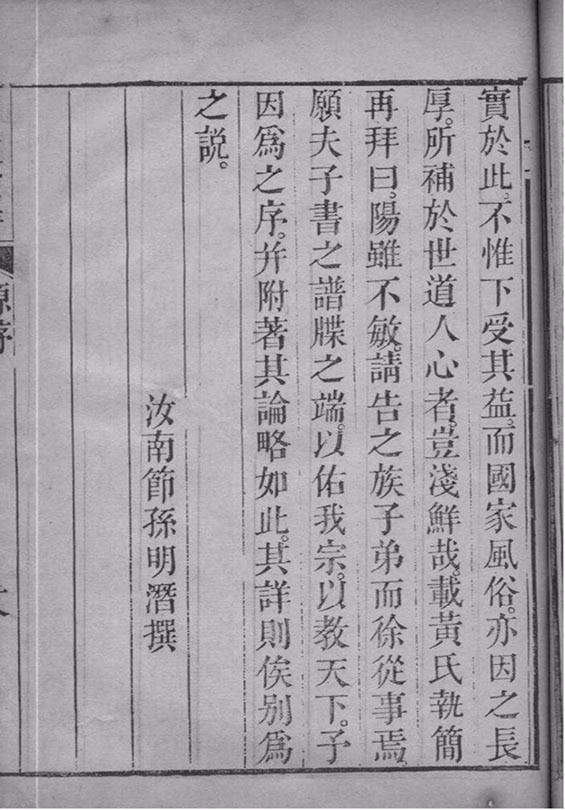 實於此。不惟下受其益。而國家風俗。亦因之長
厚。所補於世道人心者。豈淺鮮哉。載黃氏執簡
再拜曰。陽雖不敏。請告之族子弟而徐從事焉。
願夫子書之譜牒之端。以佑我宗。以教天下。予
因爲之序。并附著其論略如此。其詳則俟别爲
之説。
汝南節孫明潛撰
原序